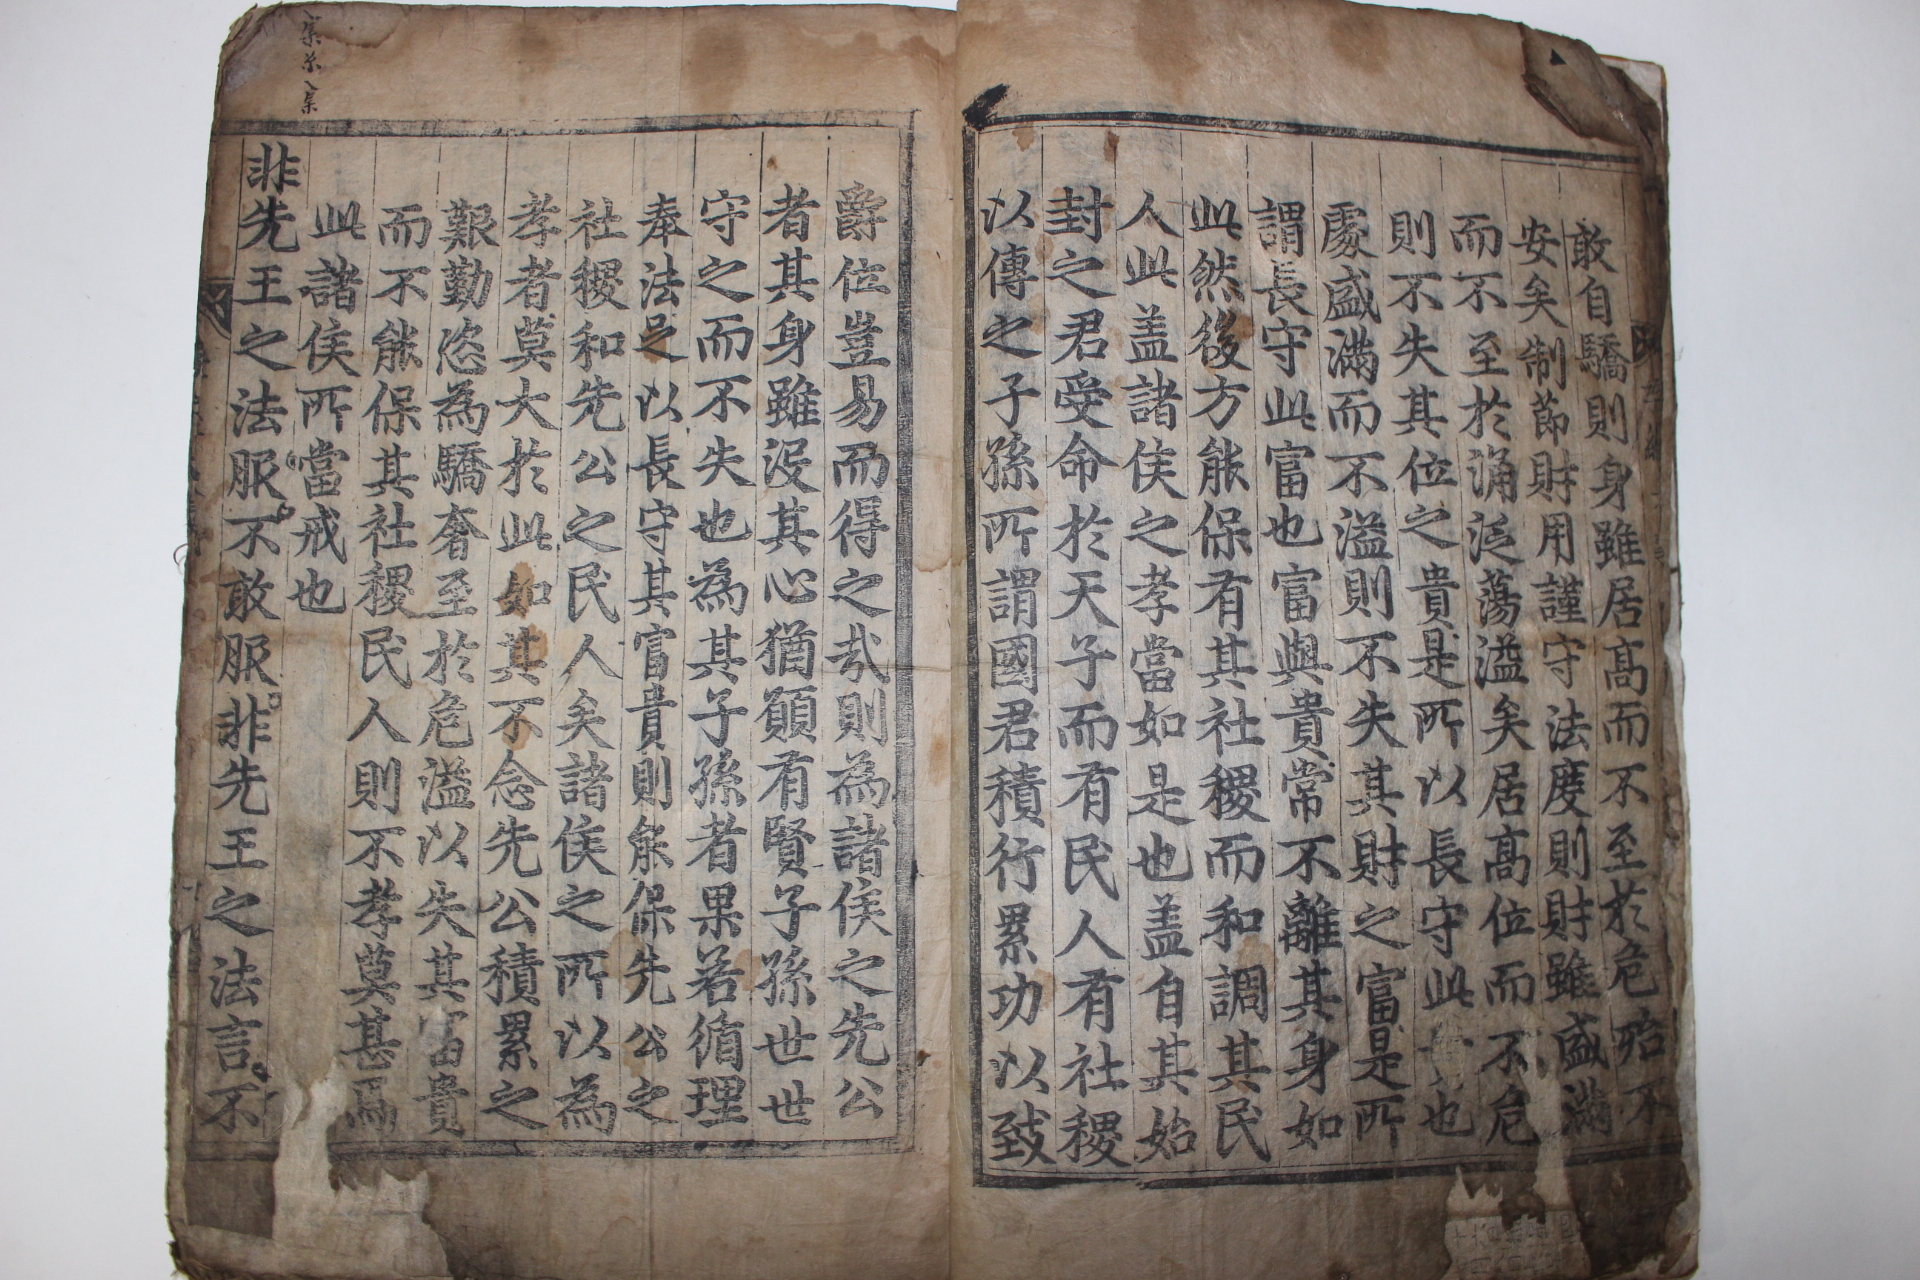 敢自驕則身雖居高而不至於危殆不
安矣制節財用謹守法度則財雖盛滿
而不至於涌泛蕩溢矣居高位而不危
則不失其位之貴是所以長守此 也
處盛滿而不溢則不失其財之富是所
謂長守此富也富與貴常不離其身如
此然後方能保有其社稷而和調其民
人此盖諸侯之孝當如是也盖自其始
封之君受命於天子而有民人有社稷
以傳之子孫所謂國君積行累功以致
爵位豈易而得之㢤則為諸侯之先公
者其身雖没其心猶願有賢子孫世世
守之而不失也為其子孫者果若循理
奉法足以長守其富貴則能保先公之
社稷和先公之民人矣諸侯之所以為
孝者莫大於此如其不念先公積累之
艱勤恣為驕奢至於危溢以失其富貴
而不能保其社稷民人則不孝莫甚焉
此諸侯所當戒也
非先王之法服不敢服非先王之法言不